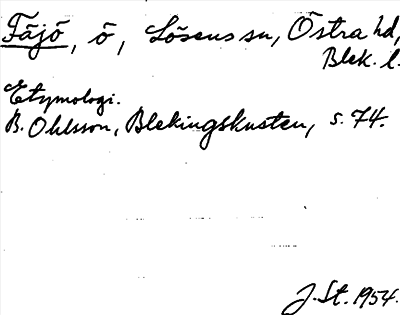 Fäjö, ö, Lösens sn, Östra hd,
Blek. l.
Etymologi.
B. Ohlsson, Blekingskusten, s. 74.
J. St. 1954.